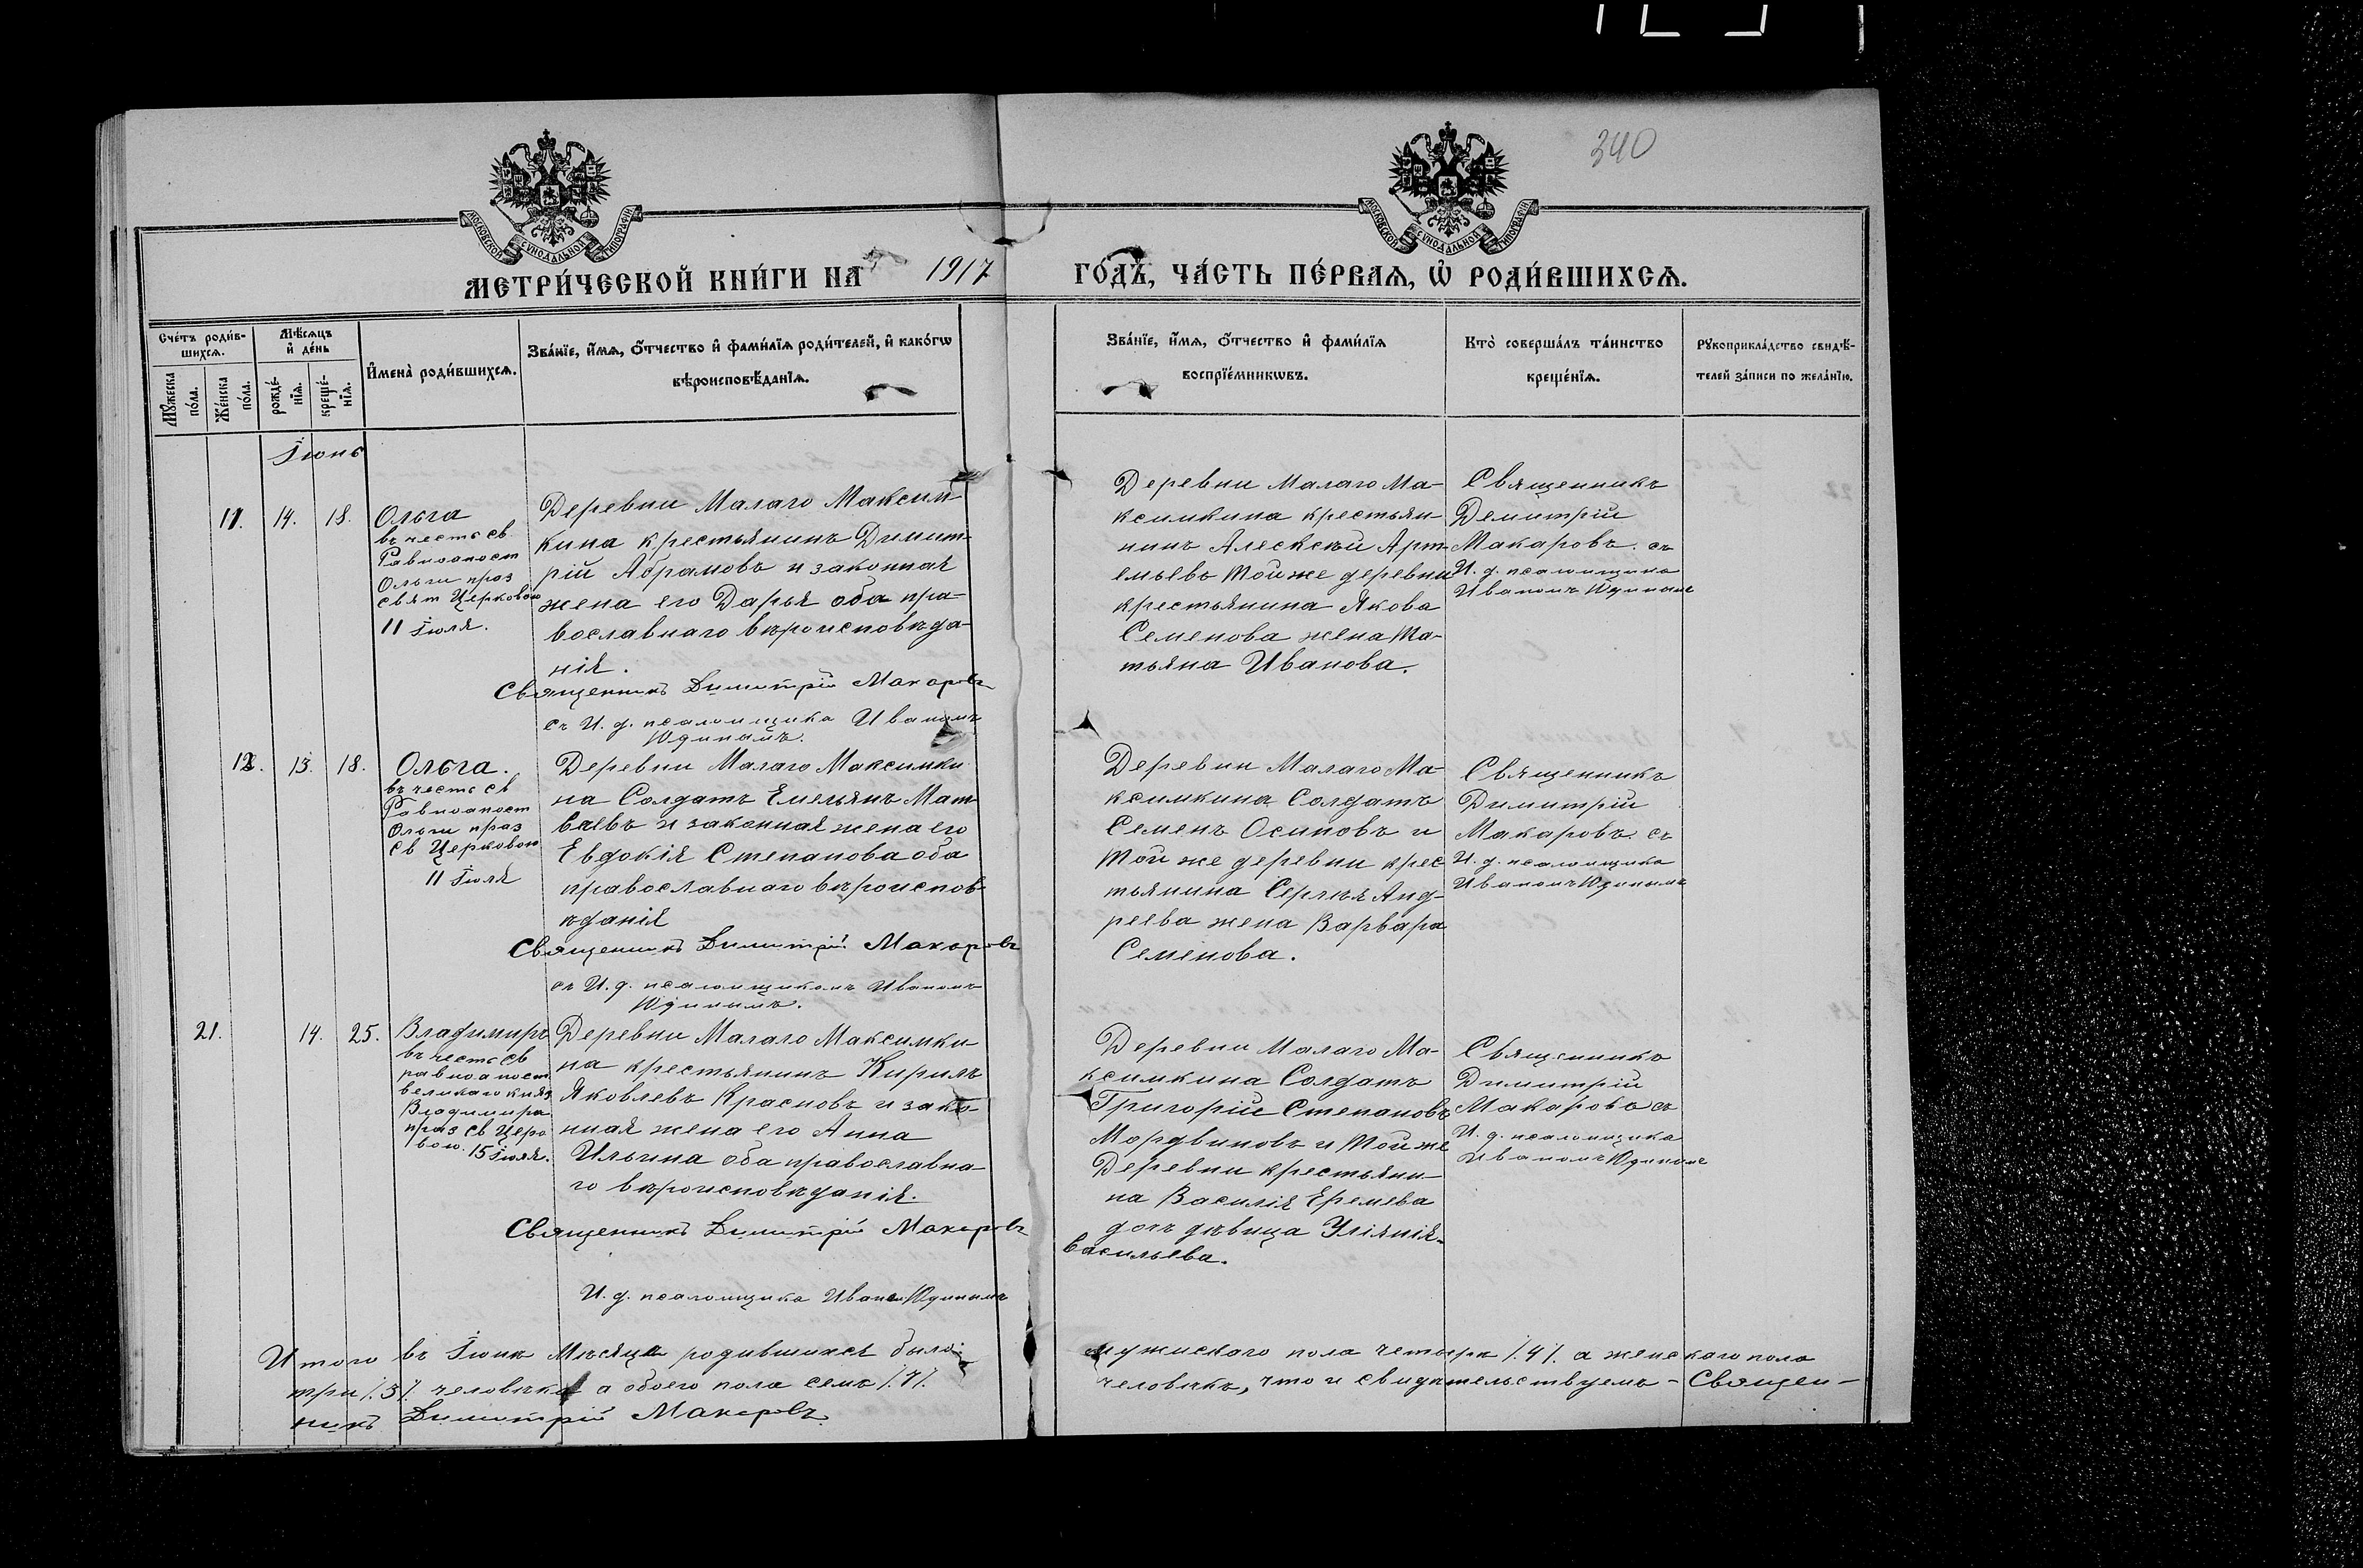 340
МОСКОВСКОЙ СУНОДАЛЬНОЙ ТИПОГРАФІИ
МОСКОВСКОЙ СУНОДАЛЬНОЙ ТИПОГРАФІИ
МЕТРИ́ЧЕСКОЙ КНИ́ГИ НА 1917 ГО́ДЪ, ЧА́СТЬ ПЕ́РВАЯ, Ѡ҆ РОДИ́ВШИХСѦ.
Сче́тъ роди́в-
шихсѧ.
Мꙋ́жеска
по́ла.
Же́нска
по́ла.
Мѣ́сѧцъ
и҆ де́нь
рожде́-
нїѧ.
креще́-
нїѧ.
И҆мена̀ роди́вшихсѧ.
Зва́нїе, и҆́мѧ, ѻ҆́тчество и҆ фами́лїѧ роди́телей, и҆ како́гѡ
вѣроисповѣ́данїѧ.
Зва́нїе, и҆́мѧ, ѻ҆́тчество и҆ фами́лїѧ
воспрїе́мникѡвъ.
Кто̀ соверша́лъ та́инство
креще́нїѧ.
Рꙋкоприкла́дство свидѣ́-
телей за́писи по жела́нїю.
Іюнь
11.
14.
18.
Ольга
въ честь св
Равноапост
Ольги праз
свят Церковью
11 Іюля.
Деревни Малаго Максим
кина крестьянинъ Димит-
рій Абрамовъ и законная
жена его Дарья оба пра-
вославнаго вѣроисповѣда-
нія.
Священникъ Димитрій Макаровъ
съ И. д. псаломщика Иваномъ
Юдинымъ.
Деревни Малаго Ма-
ксимкина крестьян-
нинъ Алексѣй Арт-
емьевъ Той же деревни
крестьянина Якова
Семенова жена Та-
тьяна Иванова.
Священникъ
Демитрій
Макаровъ съ
И. д. псаломщика
Иваномъ Юдинымъ
12.
13.
18.
Ольга.
въ честь св
Равноапост
Ольги праз
св Церковью
11 Іюля
Деревни Малаго Максимки
на Солдатъ Емельянъ Мат
веевъ и законная жена его
Евдокія Степанова оба
православнаго вѣроиспов-
ѣданія
Священникъ Димитрій Макаровъ
съ И. д. псаломщикомъ Иваномъ
Юдинымъ.
Деревни Малаго Ма-
ксимкина Солдатъ
Семенъ Осиповъ и
Той же деревни крес
тьянина Сергѣя Анд-
реева жена Варвара
Семенова.
Священникъ
Димитрій
Макаровъ съ
И. д. псаломщика
Иваномъ Юдинымъ
21.
14.
25.
Владимиръ
въ честь св
равноапост
великаго князя
Владимира
праз св Церо
вою 15 Іюля.
Деревни Малаго Максимки-
на крестьянинъ Кирилъ
Яковлевъ Красновъ и зако-
нная жена его Анна
Ильина оба православна-
го вѣроисповѣданія.
Священникъ Димитрій Макаровъ
И. д. псаломщика Иваномъ Юдинымъ
Деревни Малаго Ма-
ксимкина Солдатъ
Григорій Степановъ
Мордвиновъ и Той же
Деревни крестьяни-
на Василія Еремева
дочъ дѣвица Уліянія
Васильева.
Священникъ
Димитрій
Макаровъ съ
И. д. псаломщика
Иваномъ Юдинымъ
Итого въ Іюнѣ Мѣсяца родившихся было: мужискаго пола четырѣ /.4/. а женскаго пола
три /.3/. человѣка а обоего пола семъ /.7/. человѣкъ, что и свидѣтельствуемъ - Священ-
никъ Димитрій Макаровъ